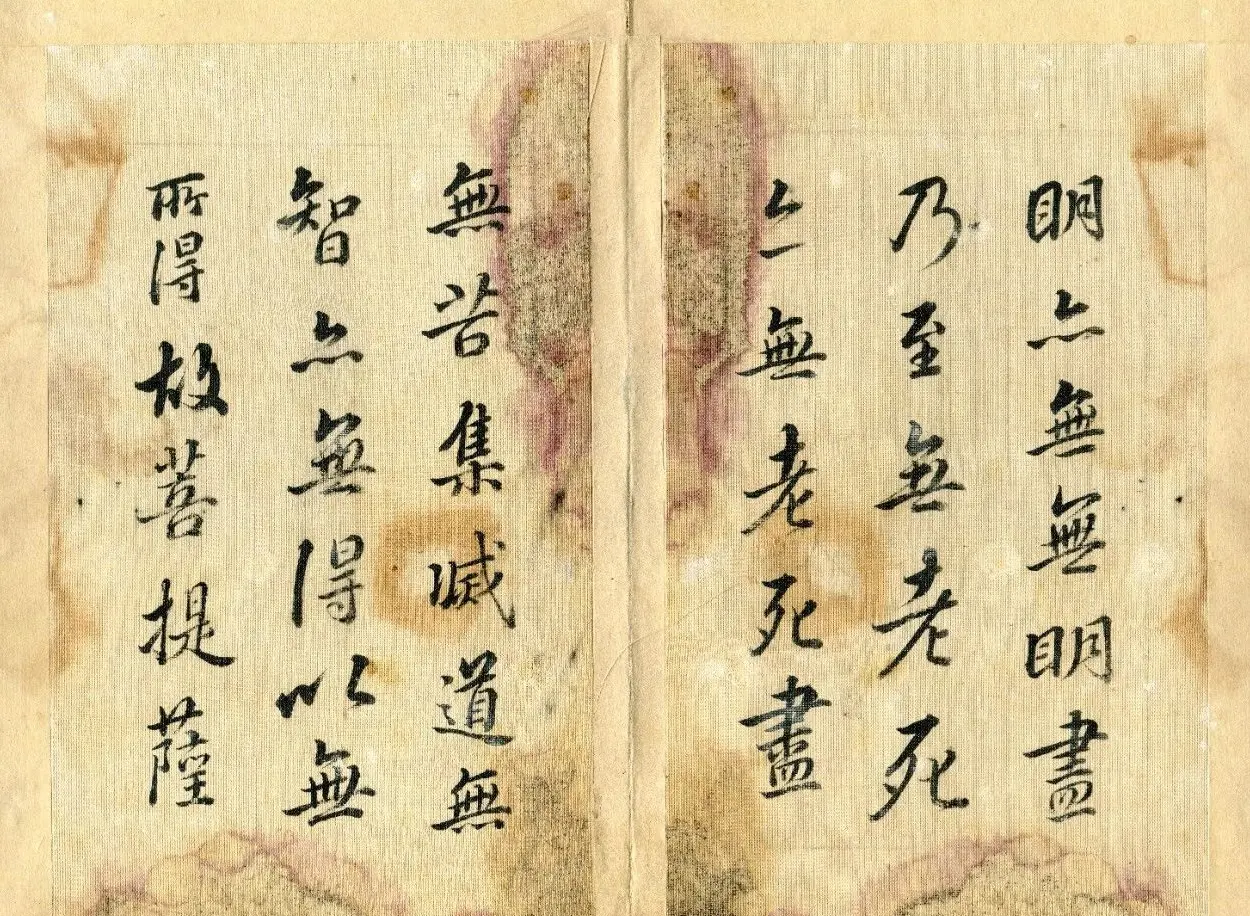 明亦無無明盡
乃至無老死
亦無老死盡
無苦集滅道無
智亦無得以無
所得故菩提薩